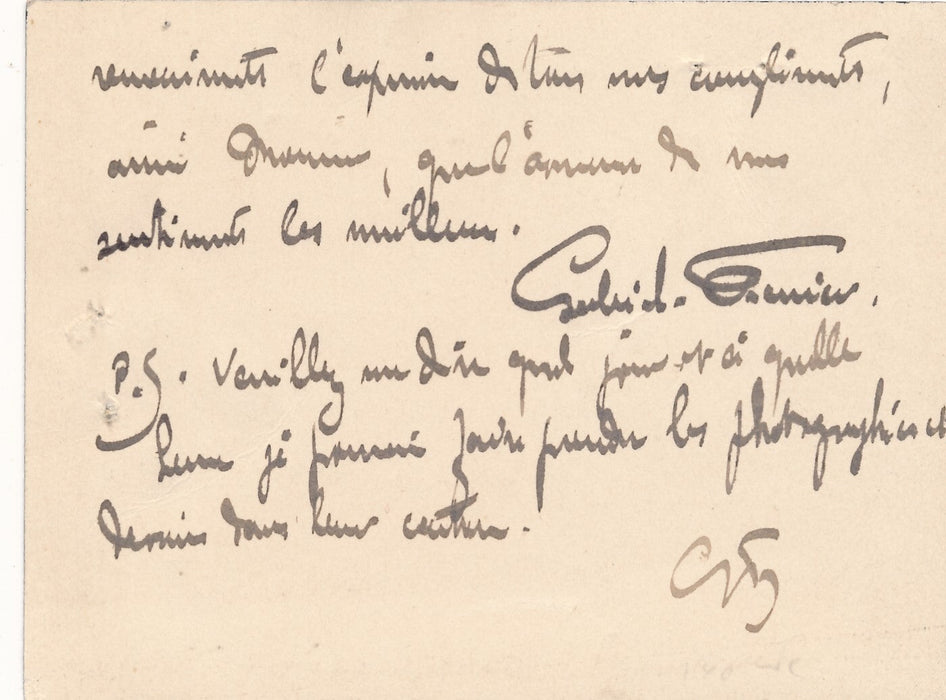 remerciments l'expression de tous mes compliments,
ainsi Monsieur, que l'assurance de mes
sentiments les meilleurs.
Gabriel-
P.S. Veuillez me dire quel jour et à quelle
heure je pourrai faire prendre les photographies et
dessins dans leur carton.